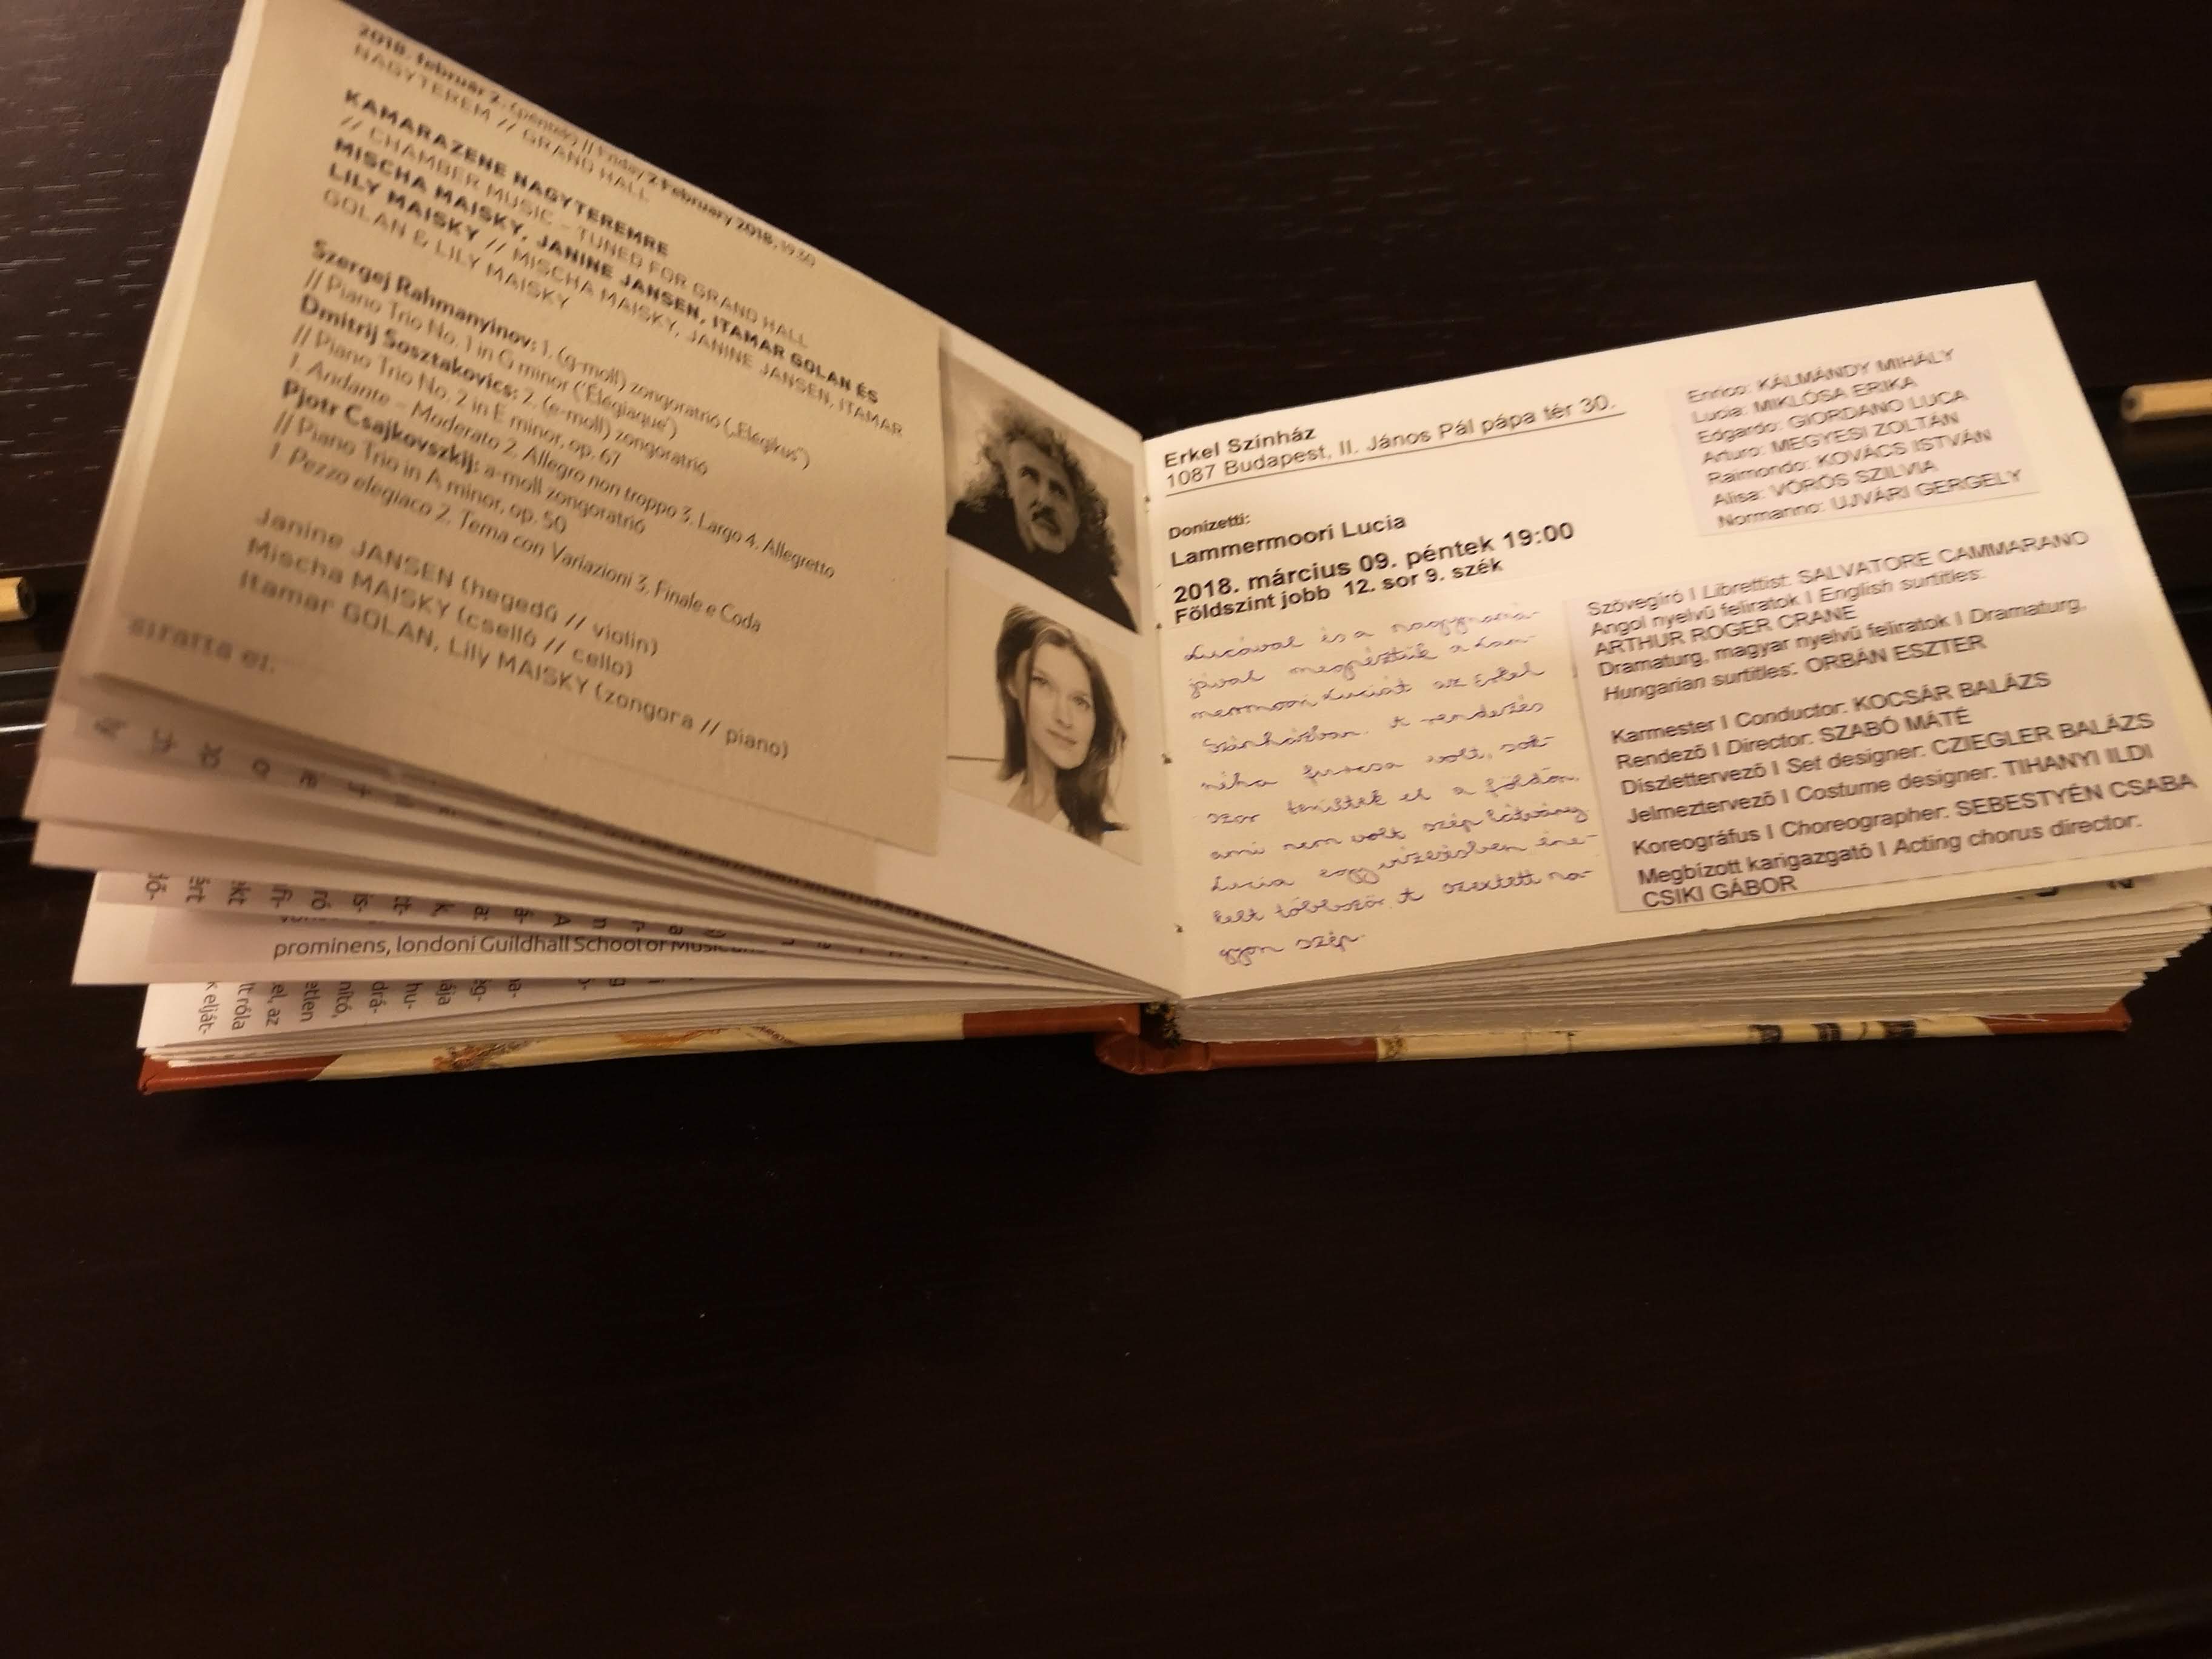 2018. február 2. (péntek) // Friday 2 February 2018, 19.30
NAGYTEREM // GRAND HALL
KAMARAZENE NAGYTEREMRE
// CHAMBER MUSIC – TUNED FOR GRAND HALL
MISCHA MAISKY, JANINE JANSEN, ITAMAR GOLAN ÉS
LILY MAISKY // MISCHA MAISKY, JANINE JANSEN, ITAMAR
GOLAN & LILY MAISKY
Szergej Rahmanyinov: 1. (g-moll) zongoratrió („Elégikus”)
// Piano Trio No. 1 in G minor ('Élégiaque')
Dmitrij Sosztakovics: 2. (e-moll) zongoratrió
// Piano Trio No. 2 in E minor, op. 67
1. Andante – Moderato 2. Allegro non troppo 3. Largo 4. Allegretto
Pjotr Csajkovszkij: a-moll zongoratrió
// Piano Trio in A minor, op. 50
1. Pezzo elegiaco 2. Tema con Variazioni 3. Finale e Coda
Janine JANSEN (hegedű // violin)
Mischa MAISKY (cselló // cello)
Itamar GOLAN, Lily MAISKY (zongora // piano)
siratta el.
prominens, londoni Guildhall School of
Erkel Színház
1087 Budapest, II. János Pál pápa tér 30.
Donizetti:
Lammermoori Lucia
2018. március 09. péntek 19:00
Földszint jobb 12. sor 9. szék
Lucával és a nagymamá-
jával megnéztük a Lam-
mermoori Luciát az Erkel
Színházban. A rendezés
néha furcsa volt, sok-
szor terültek el a földön,
ami nem volt szép látvány.
Lucia egy vizesésben éne-
kelt többször. A szextett na-
gyon szép.
Enrico: KÁLMÁNDY MIHÁLY
Lucia: MIKLÓSA ERIKA
Edgardo: GIORDANO LUCA
Arturo: MEGYESI ZOLTÁN
Raimondo: KOVÁCS ISTVÁN
Alisa: VÖRÖS SZILVIA
Normanno: UJVÁRI GERGELY
Szövegíró I Librettist: SALVATORE CAMMARANO
Angol nyelvű feliratok I English surtitles:
ARTHUR ROGER CRANE
Dramaturg, magyar nyelvű feliratok I Dramaturg,
Hungarian surtitles: ORBÁN ESZTER
Karmester I Conductor: KOCSÁR BALÁZS
Rendező I Director: SZABÓ MÁTÉ
Díszlettervező I Set designer: CZIEGLER BALÁZS
Jelmeztervező I Costume designer: TIHANYI ILDI
Koreográfus I Choreographer: SEBESTYÉN CSABA
Megbízott karigazgató I Acting chorus director:
CSIKI GÁBOR